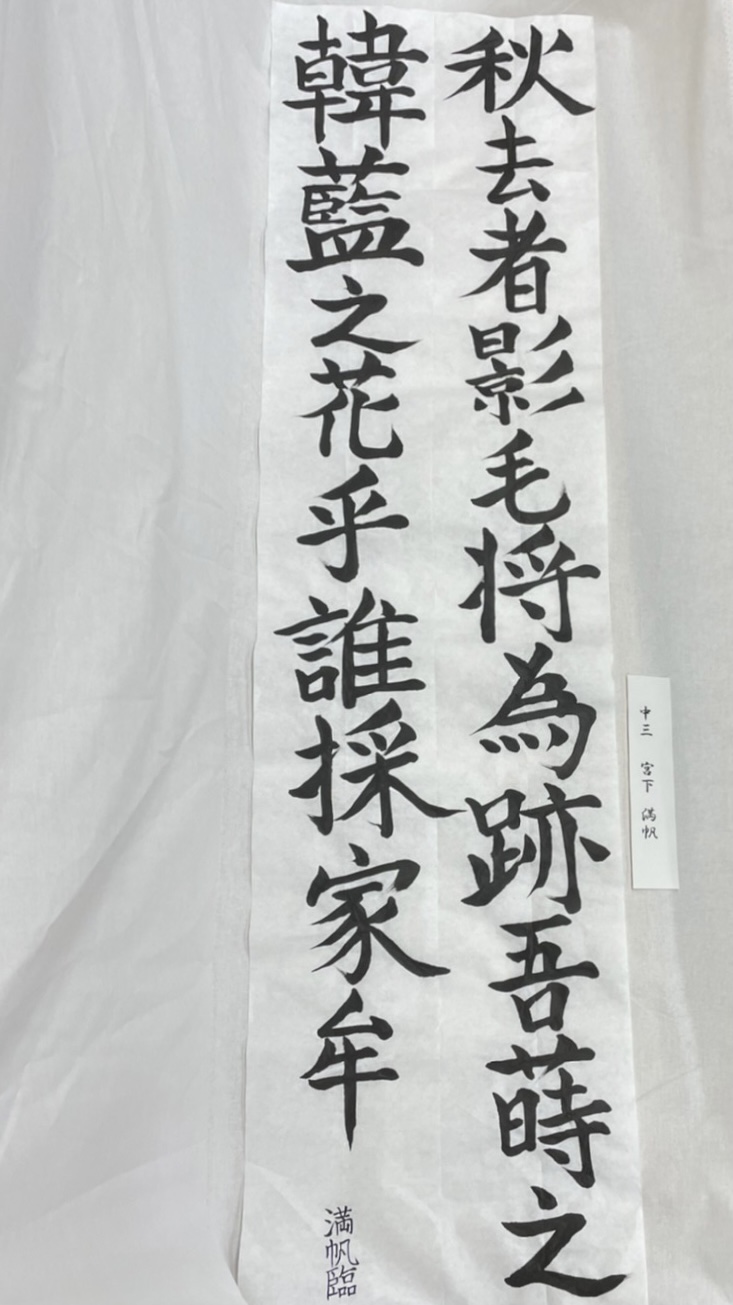 秋去者影毛将為跡吾蒔之
韓藍之花乎誰採家牟
満帆臨
中三 宮下 満帆